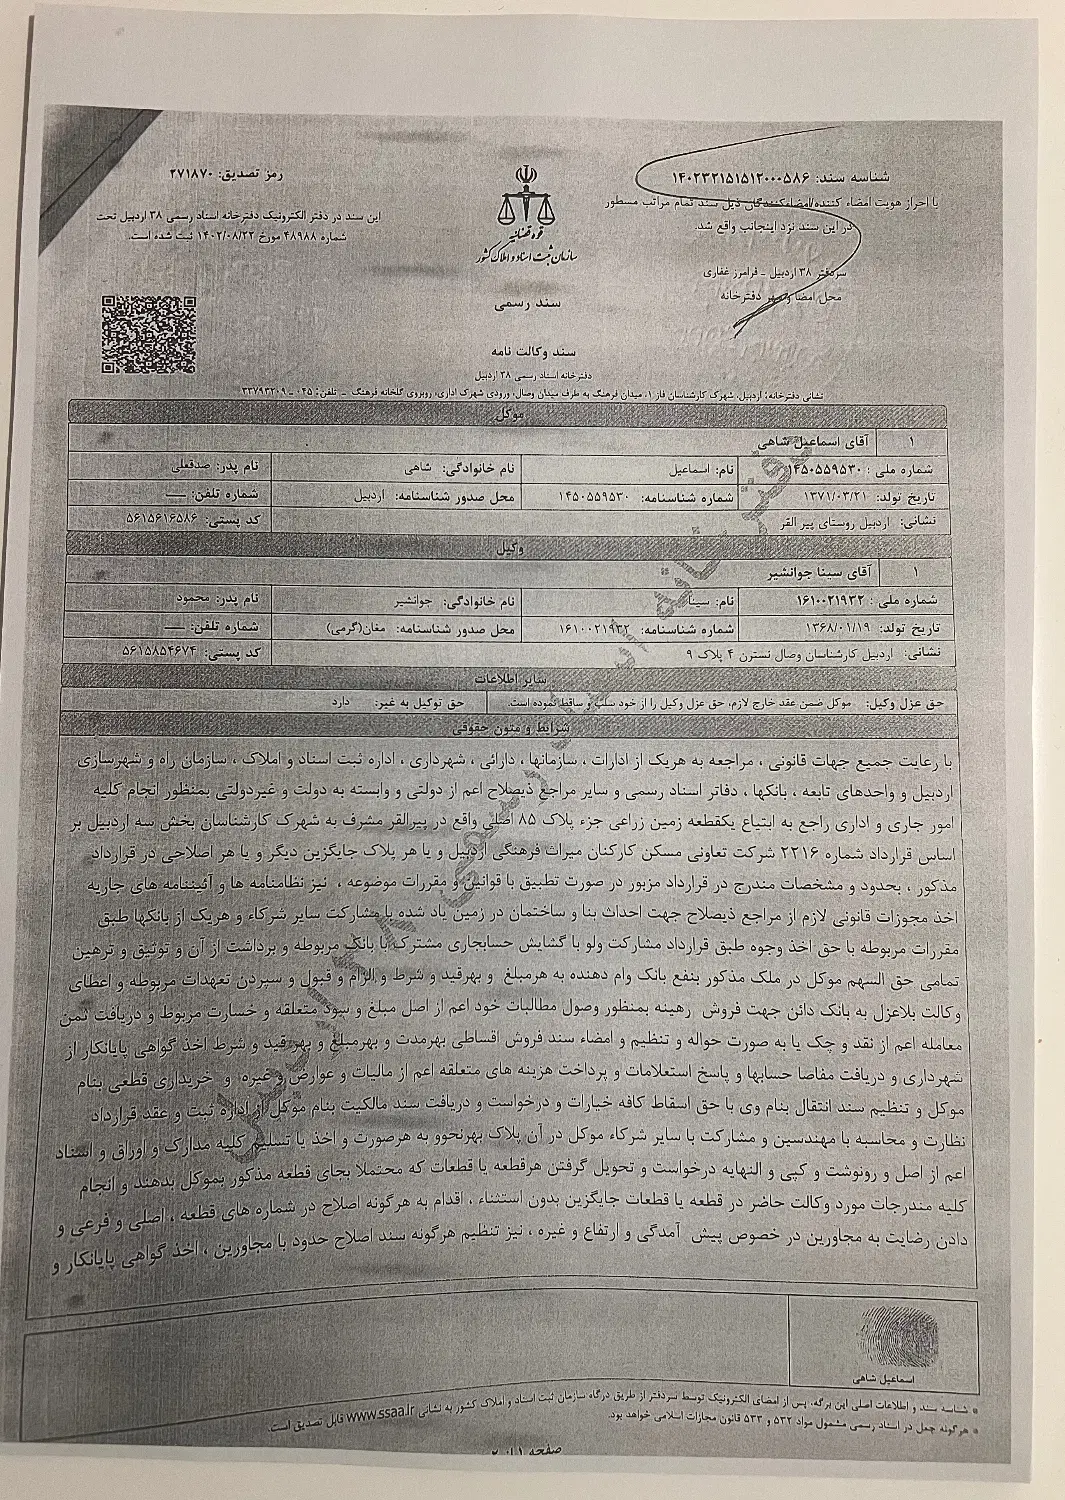 شناسه سند: ۱۴۰۲۳۲۱۵۱۵۱۲۰۰۰۵۸۶
با احراز هویت امضاء کننده/امضاءکنندگان ذیل سند تمام مراتب مسطور
در این سند نزد اینجانب واقع شد.
سردفتر ۳۸ اردبیل - فرامرز غفاری
محل امضا و مهر دفترخانه
قوه قضائیه
سازمان ثبت اسناد و املاک کشور
سند رسمی
سند وکالت نامه
دفترخانه اسناد رسمی ۳۸ اردبیل
رمز تصدیق: ۲۷۱۸۷۰
این سند در دفتر الکترونیک دفترخانه اسناد رسمی ۳۸ اردبیل تحت
شماره ۴۸۹۸۸ مورخ ۱۴۰۲/۰۸/۲۲ ثبت شده است.
نشانی دفترخانه: اردبیل، شهرک کارشناسان فاز ۱، میدان فرهنگ به طرف میدان وصال، ورودی شهرک اداری، روبروی گلخانه فرهنگ - تلفن: ۰۴۵ - ۳۳۷۹۳۲۰۹
موکل
۱ آقای اسماعیل شاهی
شماره ملی : ۱۴۵۰۵۵۹۵۳۰ نام: اسماعیل نام خانوادگی: شاهی نام پدر: صدفعلی
تاریخ تولد: ۱۳۷۱/۰۳/۲۱ شماره شناسنامه: ۱۴۵۰۵۵۹۵۳۰ محل صدور شناسنامه: اردبیل شماره تلفن: ---
نشانی: اردبیل روستای پیر القر کد پستی: ۵۶۱۵۶۱۶۵۸۶
وکیل
۱ آقای سینا جوانشیر
شماره ملی : ۱۶۱۰۰۲۱۹۳۲ نام: سینا نام خانوادگی: جوانشیر نام پدر: محمود
تاریخ تولد: ۱۳۶۸/۰۱/۱۹ شماره شناسنامه: ۱۶۱۰۰۲۱۹۳۲ محل صدور شناسنامه: مغان(گرمی) شماره تلفن: ---
نشانی: اردبیل کارشناسان وصال نسترن ۴ پلاک ۹ کد پستی: ۵۶۱۵۸۵۴۶۷۴
سایر اطلاعات
حق عزل وکیل: موکل ضمن عقد خارج لازم، حق عزل وکیل را از خود سلب و ساقط نموده است. حق توکیل به غیر: دارد
شرایط و متون حقوقی
با رعایت جمیع جهات قانونی ، مراجعه به هریک از ادارات ، سازمانها ، دارائی ، شهرداری ، اداره ثبت اسناد و املاک ، سازمان راه و شهرسازی
اردبیل و واحدهای تابعه ، بانکها ، دفاتر اسناد رسمی و سایر مراجع ذیصلاح اعم از دولتی و وابسته به دولت و غیردولتی بمنظور انجام کلیه
امور جاری و اداری راجع به ابتیاع یکقطعه زمین زراعی جزء پلاک ۸۵ اصلی واقع در پیرالقر مشرف به شهرک کارشناسان بخش سه اردبیل بر
اساس قرارداد شماره ۲۲۱۶ شرکت تعاونی مسکن کارکنان میراث فرهنگی اردبیل و یا هر پلاک جایگزین دیگر و یا هر اصلاحی در قرارداد
مذکور ، بحدود و مشخصات مندرج در قرارداد مزبور در صورت تطبیق با قوانین و مقررات موضوعه ، نیز نظامنامه ها و آئیننامه های جاریه
اخذ مجوزات قانونی لازم از مراجع ذیصلاح جهت احداث بنا و ساختمان در زمین یاد شده با مشارکت سایر شرکاء و هریک از بانکها طبق
مقررات مربوطه با حق اخذ وجوه طبق قرارداد مشارکت ولو با گشایش حسابجاری مشترک با بانک مربوطه و برداشت از آن و توثیق و ترهین
تمامی حق السهم موکل در ملک مذکور بنفع بانک وام دهنده به هرمبلغ و بهرقید و شرط و الزام و قبول و سپردن تعهدات مربوطه و اعطای
وکالت بلاعزل به بانک دائن جهت فروش رهینه بمنظور وصول مطالبات خود اعم از اصل مبلغ و سود متعلقه و خسارت مربوط و دریافت ثمن
معامله اعم از نقد و چک یا به صورت حواله و تنظیم و امضاء سند فروش اقساطی بهرمدت و بهرمبلغ و بهرقید و شرط اخذ گواهی پایانکار از
شهرداری و دریافت مفاصا حسابها و پاسخ استعلامات و پرداخت هزینه های متعلقه اعم از مالیات و عوارض و غیره و خریداری قطعی بنام
موکل و تنظیم سند انتقال بنام وی با حق اسقاط کافه خیارات و درخواست و دریافت سند مالکیت بنام موکل از اداره ثبت و عقد قرارداد
نظارت و محاسبه با مهندسین و مشارکت با سایر شرکاء موکل در آن پلاک بهرنحوو به هرصورت و اخذ یا تسلیم کلیه مدارک و اوراق و اسناد
اعم از اصل و رونوشت و کپی و النهایه درخواست و تحویل گرفتن هرقطعه یا قطعات که محتملا بجای قطعه مذکور بموکل بدهند و انجام
کلیه مندرجات مورد وکالت حاضر در قطعه یا قطعات جایگزین بدون استثناء ، اقدام به هرگونه اصلاح در شماره های قطعه ، اصلی و فرعی و
دادن رضایت به مجاورین در خصوص پیش آمدگی و ارتفاع و غیره ، نیز تنظیم هرگونه سند اصلاح حدود با مجاورین ، اخذ گواهی پایانکار و
اسماعیل شاهی
* شناسه سند و اطلاعات اصلی این برگه، پس از امضای الکترونیک توسط سردفتر از طریق درگاه سازمان ثبت اسناد و املاک کشور به نشانی www.ssaa.ir قابل تصدیق است.
* هرگونه جعل در اسناد رسمی مشمول مواد ۵۳۲ و ۵۳۳ قانون مجازات اسلامی خواهد بود.
صفحه ۱ از ۲